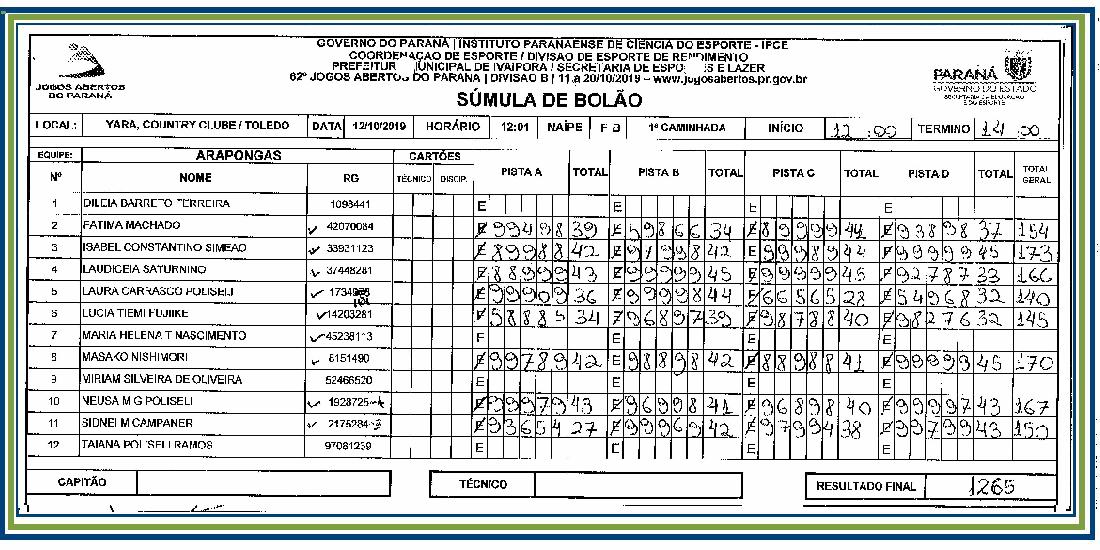 GOVERNO DO PARANÁ | INSTITUTO PARANAENSE DE CIÊNCIA DO ESPORTE - IPCE
COORDENAÇÃO DE ESPORTE / DIVISÃO DE ESPORTE DE RENDIMENTO
PREFEITUR MUNICIPAL DE IVAIPORÃ / SECRETARIA DE ESPO S E LAZER
62º JOGOS ABERTOS DO PARANÁ | DIVISÃO B | 11 a 20/10/2019 – www.jogosabertos.pr.gov.br
JOGOS ABERTOS
DO PARANÁ
PARANÁ
GOVERNO DO ESTADO
SÚMULA DE BOLÃO
LOCAL: YARA, COUNTRY CLUBE / TOLEDO DATA 12/10/2019 HORÁRIO 12:01 NAIPE F B 1ª CAMINHADA INÍCIO 12:00 TERMINO 14:00
EQUIPE: ARAPONGAS CARTÕES PISTA A TOTAL PISTA B TOTAL PISTA C TOTAL PISTA D TOTAL TOTAL GERAL
Nº NOME RG TÉCNICO DISCIP.
1 DILEIA BARRETO FERREIRA 1093441 E E E E
2 FATIMA MACHADO ✓ 42070084 E 9 9 4 9 8 39 E 5 9 8 6 6 34 E 8 9 9 9 9 44 E 9 3 8 9 8 37 154
3 ISABEL CONSTANTINO SIMEAO ✓ 33931123 E 8 9 9 8 8 42 E 9 7 9 9 8 42 E 9 9 9 8 9 44 E 9 9 9 9 9 45 173
4 LAUDICEIA SATURNINO ✓ 37448281 E 8 8 9 9 9 43 E 9 9 9 9 9 45 E 9 9 9 9 9 45 E 9 2 7 8 7 33 166
5 LAURA CARRASCO POLISELI ✓ E 9 9 9 0 9 36 E 9 9 9 9 8 44 E 6 6 5 6 5 28 E 5 4 9 6 8 32 140
6 LUCIA TIEMI FUJIIKE ✓ 14203281 E 5 8 8 8 5 34 E 9 6 8 9 7 39 E 9 8 7 8 8 40 E 9 8 2 7 6 32 145
7 MARIA HELENA T NASCIMENTO ✓ 45238113 E E E E
8 MASAKO NISHIMORI ✓ 8151490 E 9 9 7 8 9 42 E 9 8 8 9 8 42 E 8 8 9 8 8 41 E 9 9 9 9 9 45 170
9 MIRIAM SILVEIRA DE OLIVEIRA 52466520 E E E E
10 NEUSA M G POLISELI ✓ 1928725 E 9 9 9 7 9 43 E 9 6 9 9 8 41 E 9 6 8 9 8 40 E 9 9 9 9 7 43 167
11 SIDNEI M CAMPANER ✓ 2175284 E 9 3 6 5 4 27 E 9 9 9 6 9 42 E 9 7 9 9 4 38 E 9 9 7 9 9 43 150
12 TAIANA POLISELI RAMOS 97081239 E E E E
CAPITÃO TÉCNICO RESULTADO FINAL 1265